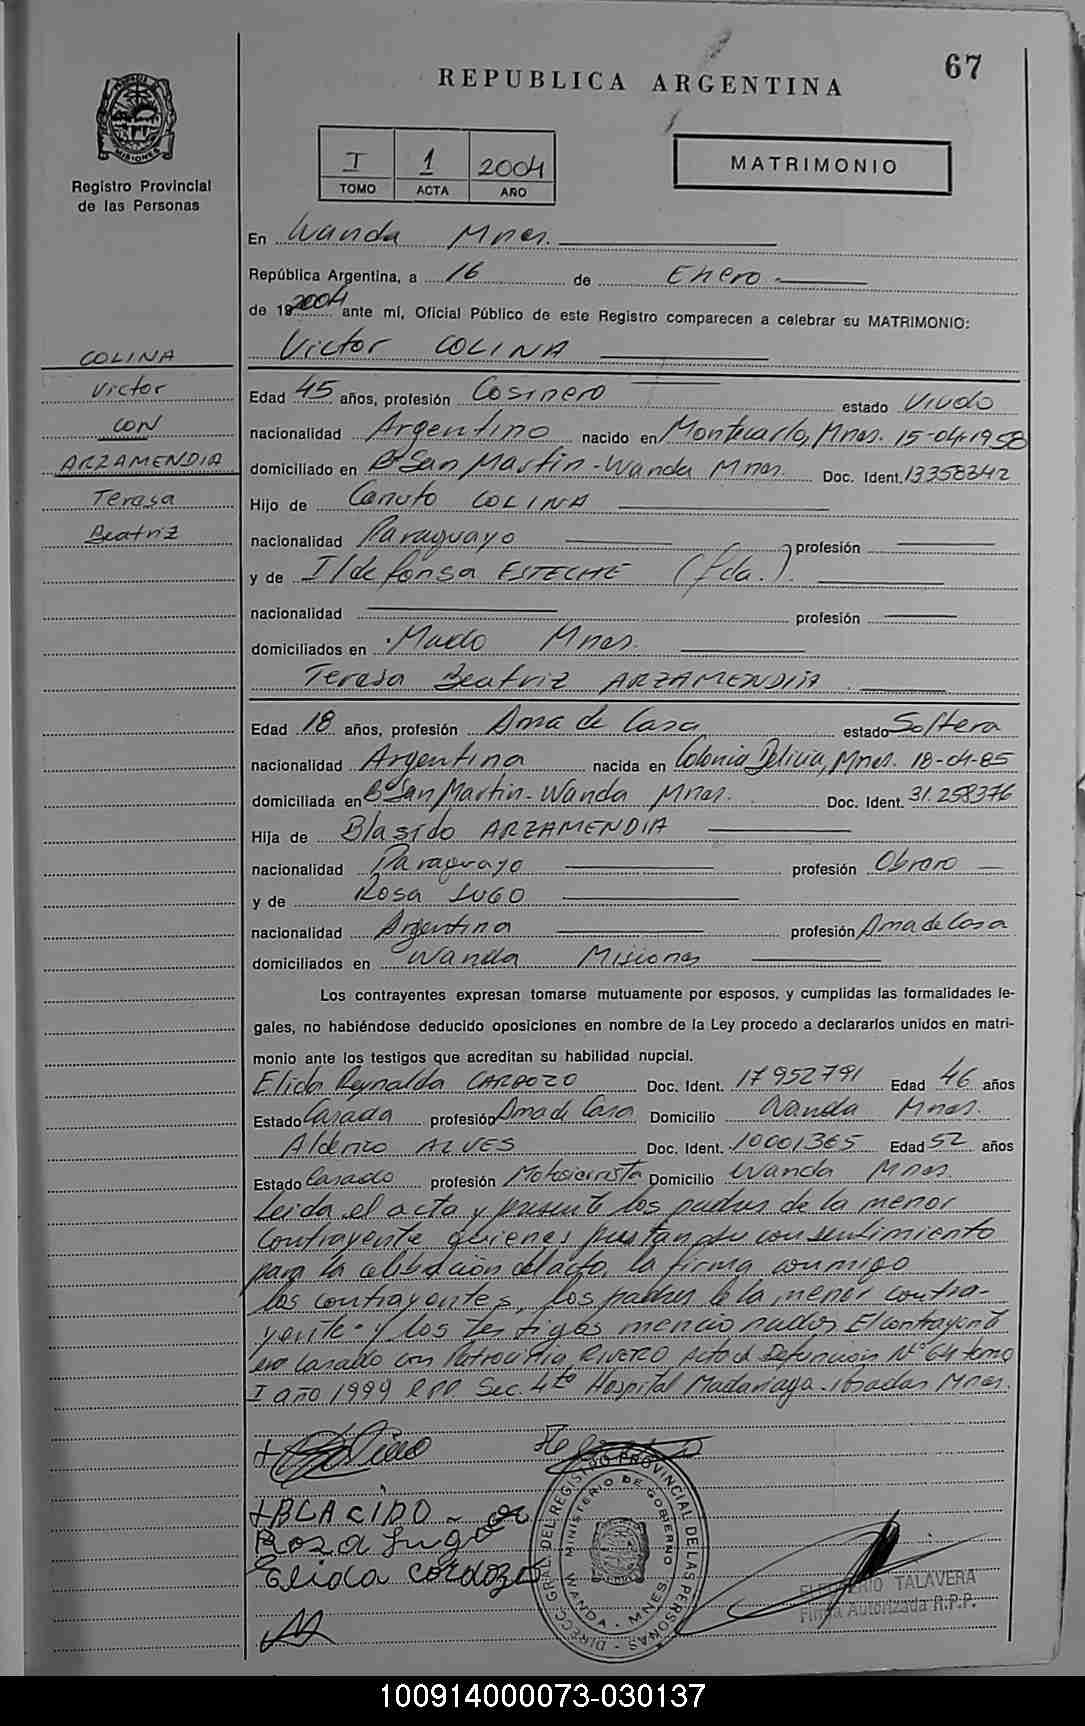 67
REPUBLICA ARGENTINA
MISIONES
Registro Provincial
de las Personas
I 1 2004
TOMO ACTA AÑO
MATRIMONIO
En Wanda Mnes.
República Argentina, a 16 de Enero
de 19 2004 ante mí, Oficial Público de este Registro comparecen a celebrar su MATRIMONIO:
Victor COLINA
COLINA
Victor
CON
ARZAMENDIA
Teresa
Beatriz
Edad 45 años, profesión Cosinero estado Viudo
nacionalidad Argentino nacido en Montecarlo, Mnes. 15-04-1958
domiciliado en Bº San Martin - Wanda Mnes. Doc. Ident. 13358342
Hijo de Canuto COLINA
nacionalidad Paraguayo profesión
y de Ildefonsa ESTECHE (fda.).
nacionalidad profesión
domiciliados en Mado Mnes.
Teresa Beatriz ARZAMENDIA
Edad 18 años, profesión Ama de Casa estado Soltera
nacionalidad Argentina nacida en Colonia Delicia, Mnes. 18-04-85
domiciliada en Bº San Martin - Wanda Mnes. Doc. Ident. 31.258376
Hija de Blasido ARZAMENDIA
nacionalidad Paraguayo profesión Obrero
y de Rosa LUGO
nacionalidad Argentina profesión Ama de Casa
domiciliados en Wanda Misiones
Los contrayentes expresan tomarse mutuamente por esposos, y cumplidas las formalidades le-
gales, no habiéndose deducido oposiciones en nombre de la Ley procedo a declararlos unidos en matri-
monio ante los testigos que acreditan su habilidad nupcial.
Elida Reynalda CARDOZO Doc. Ident. 17952791 Edad 46 años
Estado Casada profesión Ama de Casa Domicilio Wanda Mnes.
ALVES Doc. Ident. 10001365 Edad 52 años
Estado Casado profesión Motosierrista Domicilio Wanda Mnes.
Leida el acta y presente los padres de la menor
contrayente quienes prestan su consentimiento
para la celebración del acto, la firma conmigo
los contrayentes, los padres de la menor contra-
yente y los testigos mencionados El contrayente
era casado con Patrocinia RIVERO Acta de Defunción Nº 64 tomo
I año 1999 RPP Sec. 4to Hospital Madariaga. Posadas Mnes.
BLACIDO
Roza Lugo
Elida Cardozo
DIRECC. GRAL. DEL REGISTRO PROVINCIAL DE LAS PERSONAS
MINISTERIO DE GOBIERNO
WANDA - MNES.
TALAVERA
Firma Autorizada R.P.P.
100914000073-030137